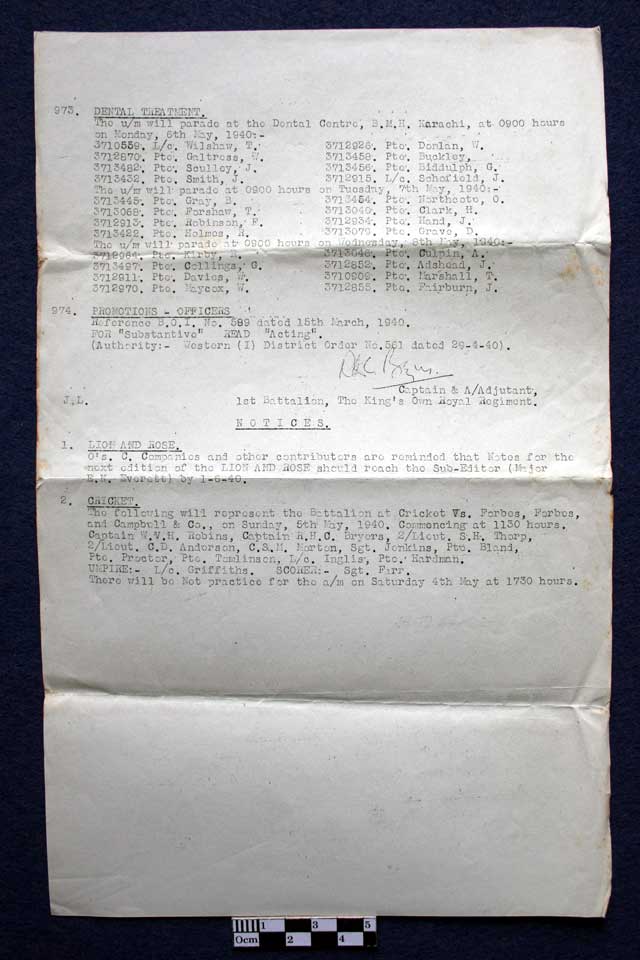 973. DENTAL TREATMENT.
The u/m will parade at the Dental Centre, B.M.H. Karachi, at 0900 hours
on Monday, 6th May, 1940:-
3710559. L/c. Wilshaw, T. 3712925. Pte. Donlan, W.
3712870. Pte. Galtress, W. 3713458. Pte. Buckley,
3713482. Pte. Sculley, J. 3713456. Pte. Biddulph, G.
3713432. Pte. Smith, J. 3712915. L/c. Schofield, J.
The u/m will parade at 0900 hours on Tuesday, 7th May, 1940:-
3713445. Pte. Gray, B. 3713454. Pte. Northcote, O.
3713068. Pte. Forshaw, T. 3713040. Pte. Clark, H.
3712913. Pte. Robinson, F. 3712934. Pte. Hand, J.
3713422. Pte. Holmes, R. 3713079. Pte. Grave, D.
The u/m will parade at 0900 hours on Wednesday, 8th May, 1940:-
3712964. Pte. Kirby, R. 3713048. Pte. Culpin, A.
3713497. Pte. Collings, G. 3712852. Pte. Adshead, J.
3712911. Pte. Davies, W. 3710909. Pte. Marshall, T.
3712970. Pte. Maycox, W. 3712855. Pte. Fairburn, J.
974. PROMOTIONS - OFFICERS
Reference B.O.I. No. 589 dated 15th March, 1940.
FOR "Substantive" READ "Acting".
(Authority:- Western (I) District Order No.561 dated 29-4-40).
Captain & A/Adjutant,
J.L. 1st Battalion, The King's Own Royal Regiment.
NOTICES.
1. LION AND ROSE.
O's. C. Companies and other contributors are reminded that Notes for the
next edition of the LION AND ROSE should reach the Sub-Editor (Major
E.M. Everett) by 1-6-40.
2. CRICKET.
The following will represent the Battalion at Cricket Vs. Forbes, Forbes,
and Campbull & Co., on Sunday, 5th May, 1940. Commencing at 1130 hours.
Captain W.V.H. Robins, Captain R.H.C. Bryers, 2/Lieut. S.H. Thorp,
2/Lieut. C.D. Anderson, C.S.M. Morton, Sgt. Jenkins, Pte. Bland,
Pte. Proctor, Pte. Tomlinson, L/c. Inglis, Pte. Hardman.
UMPIRE:- L/c. Griffiths. SCORER:- Sgt. Farr.
There will be Net practice for the a/m on Saturday 4th May at 1730 hours.
0cm 1 2 3 4 5